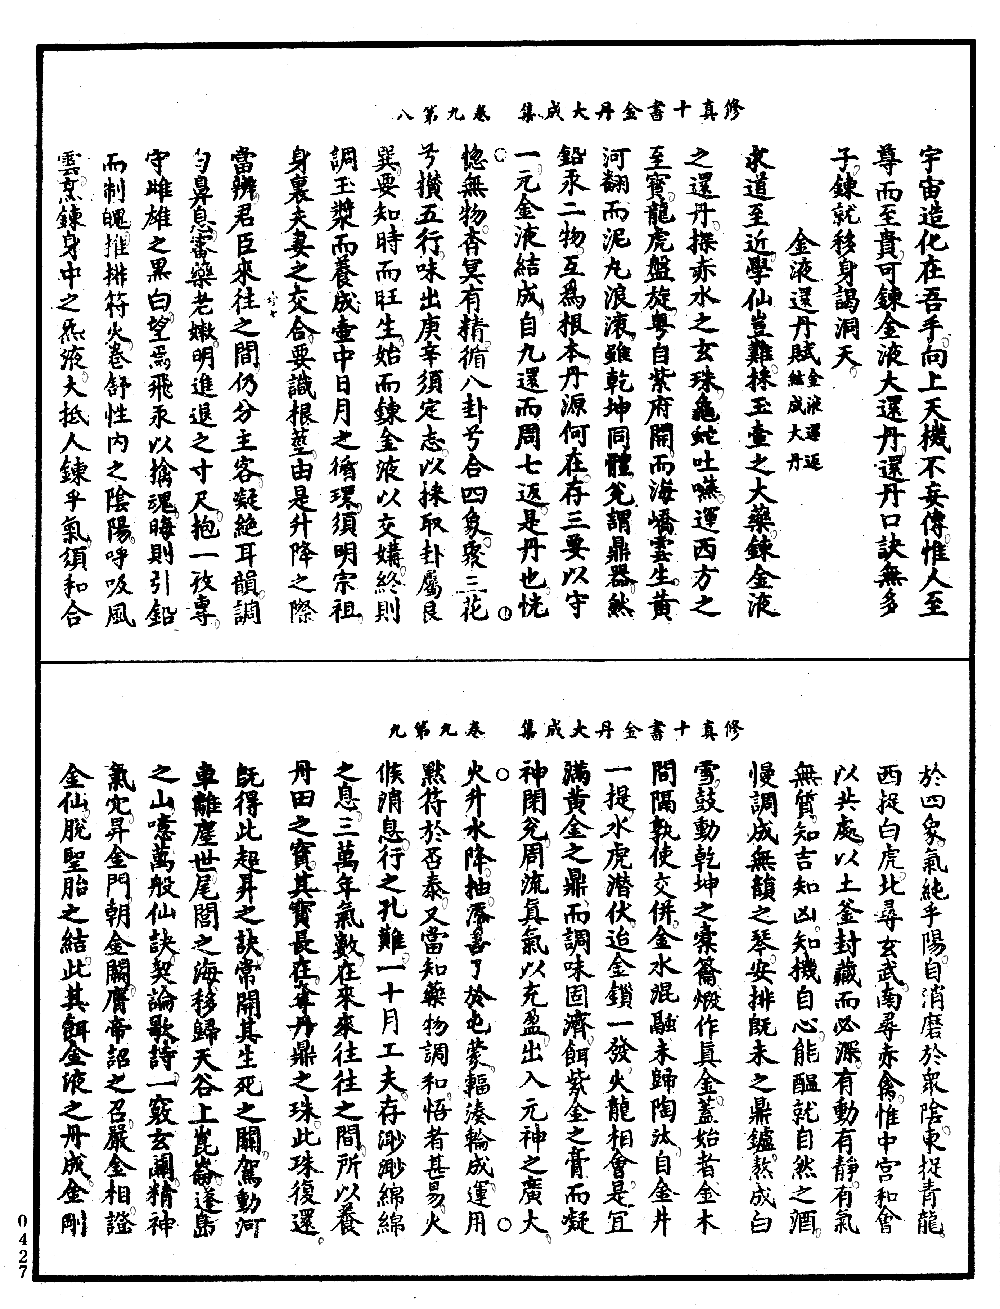 修真十書金丹大成集　卷九第八
宇宙造化在吾手向上天機不妄傳惟人至
尊而至貴可鍊金液大還丹還丹口訣無多
子鍊就移身謁洞天
金液還丹賦金液還返結成大丹
求道至近學仙豈難採玉壺之大藥鍊金液
之還丹探赤水之玄珠龜蛇吐嚥運西方之
至寶龍虎盤旋粵自紫府開而海嶠雲生黃
河翻而泥丸浪滾雖乾坤同體兊謂鼎器然
鉛汞二物互爲根本丹源何在存三要以守
一元金液結成自九還而周七返是丹也恍
惚無物杳冥有精循八卦兮合四象聚三花
兮攢五行味出庚辛須定志以採取卦屬艮
巽要知時而旺生始而鍊金液以交媾終則
調玉漿而養成壺中日月之循環須明宗祖
身裏夫妻之交合要識根莖由是升降之際
當辨君臣來往之間仍分主客凝絶耳韻調
勻鼻息審藥老嫩明進退之寸尺抱一孜專
守雌雄之黑白望焉飛汞以擒魂晦則引鉛
而制魄推排符火卷舒性內之陰陽呼吸風
雲烹鍊身中之炁液大抵人鍊乎氣須和合
修真十書金丹大成集　卷九第九
於四象氣純乎陽自消磨於衆陰東捉青龍
西捉白虎北尋玄武南尋赤禽惟中宫和會
以共處以土釜封藏而必深有動有静有氣
無質知吉知凶知機自心能醖就自然之酒
慢調成無韻之琴安排既未之鼎鑪熬成白
雪鼓動乾坤之橐籥煅作真金蓋始者金木
間隔孰使交併金水混融未歸陶汰自金井
一提水虎潛伏迨金鎖一發火龍相會是宜
滿黃金之鼎而調味固濟餌紫金之膏而凝
神閉兊周流真氣以充盈出入元神之廣大
火升水降抽添善了於屯蒙輻湊輪成運用
默符於否泰又當知藥物調和悟者甚易火
候消息行之孔難一十月工夫存渺渺綿綿
之息三萬年氣數在來來往往之間所以養
丹田之寶其寶長在奪丹鼎之珠此珠復還
旣得此超昇之訣常開其生死之關駕動河
車離塵世尾閭之海移歸天谷上崑崙蓬島
之山噫萬般仙訣契論歌詩一竅玄關精神
氣穴昇金門朝金闕膺帝詔之召嚴金相證
金仙脫聖胎之結此其餌金液之丹成金剛
0427